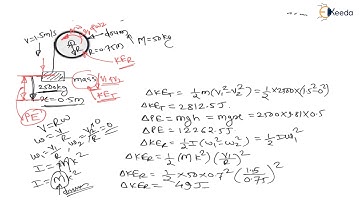 Keeda
V=1.5m/s
drum
M=50kg
R=0.75m
KE_R
2500kg
mass
x=0.5m
PE
KE_T
V=Rω
ω=V/R
ω₁=V₁/R
ω₂=V₂/R=0
I=Mk²
I=Mk²
drum
ΔKE_T=1/2 m(V₁²-V₂²)=1/2×2500×(1.5²-0²)
ΔKE_T=2812.5J
ΔPE=mgh=mgx=2500×9.81×0.5
ΔPE=12262.5J
ΔKE_R=1/2 I(ω₁²-ω₂²)=1/2 Iω₁²
ΔKE_R=1/2 (Mk²)(V₁/R)²
ΔKE_R=1/2×50×0.7²(1.5/0.75)²
ΔKE_R=49J